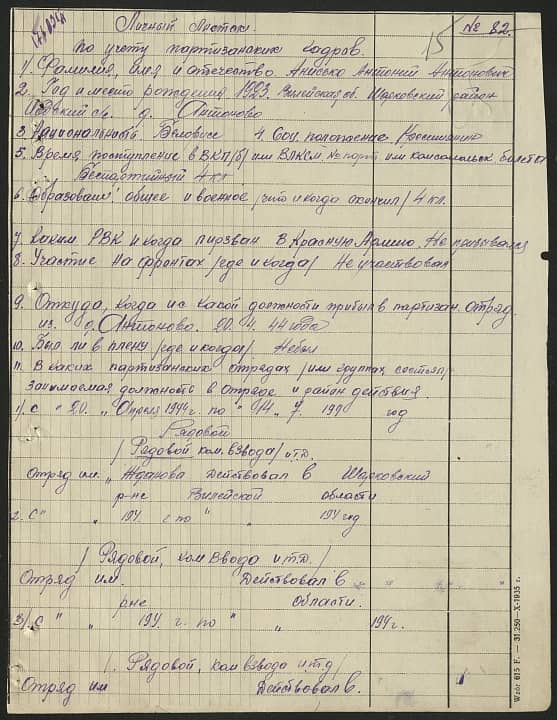 Личный Листок № 82.
По учету партизанских кадров. 15
1) Фамилия, имя и отчество. Анисько Антоний Антонович
2. Год и место рождения 1923. Вилейская об. Шарковский район
с/с. д. Антоново
3 Национальность Белорусс 4. Соц. положение. Крестьянин
5. Время поступление в ВКП/б/ или ВЛКСМ. № парт или комсомольск билета
Беспартийный 4 кл
6. Образование общее и военное /что и когда окончил/ 4 кл.
7 Каким РВК и когда призван В Красную Армию. Не призывался
8. Участие на фронтах /где и когда/ Не участвовал
9. Откуда, когда и с какой должности прибыл в партизан. отряд.
из. д. Антоново. 20. 4. 44 года
10. Был ли в плену /где и когда/ Небыл
11. В каких партизанских отрядах /или группах состоял/
занимаемая должность в отряде и район действия.
1/. С " 20. " Апреля 1944г. по " 14 " 7. 194 год
Рядовой
/ Рядовой, ком. взвода / и т.д.
Отряд им. " Жданова Действовал в Шарковский
р-не Вилейской области
2. С " " 194 г по " " 194 год
/ Рядовой, ком Взвода и т.д. /
Отряд им. Действовал в " " "
рне Области.
3/. С " " 194 г. по " " 194 г.
/. Рядовой, ком взвода и т.д /
Отряд им Действовал в.
Wzór 615 F. — 31.250—X—1935 r.